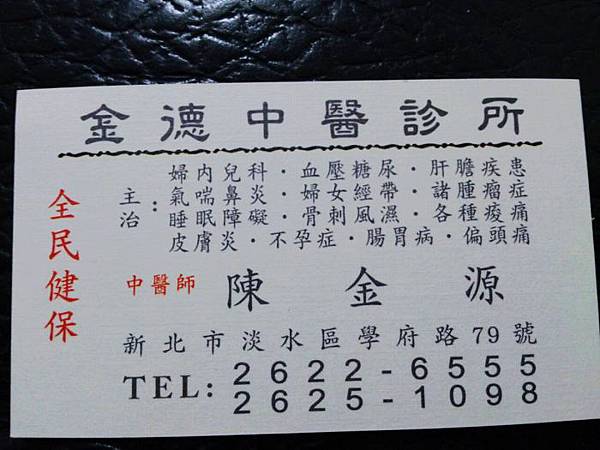 金德中醫診所
全民健保
主治：
婦內兒科·血壓糖尿·肝膽疾患
氣喘鼻炎·婦女經帶·諸腫瘤症
睡眠障礙·骨刺風濕·各種痠痛
皮膚炎·不孕症·腸胃病·偏頭痛
中醫師 陳金源
新北市淡水區學府路79號
TEL: 2622-6555
2625-1098